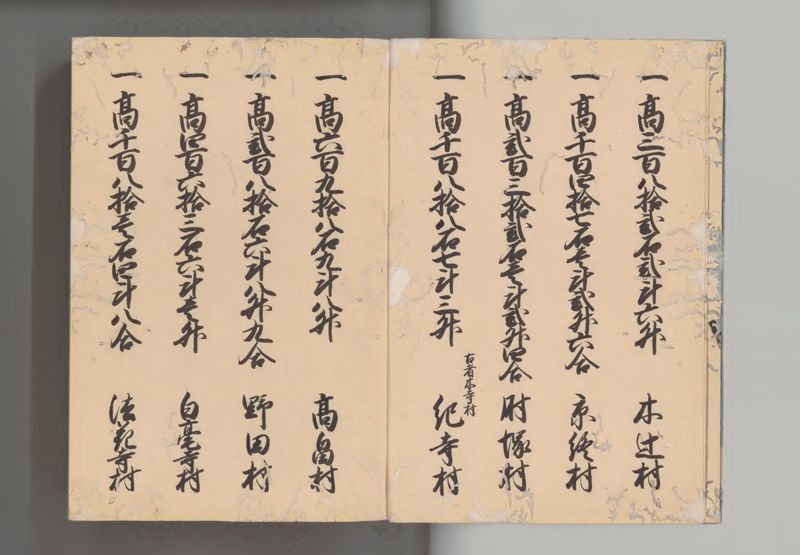 一高三百八拾弐石弐斗六升 木辻村
一高千百四拾七石壱斗弐升六合 京終村
一高弐百三拾弐石壱斗弐升四合 肘塚村
一高千百八拾八石七斗三升 紀寺村
古者本寺村
一高六百九拾八石九斗八升 高畠村
一高弐百八拾石六斗八升九合 野田村
一高四百六拾三石六斗壱升 白毫寺村
一高千百八拾壱石四斗八合 法花寺村